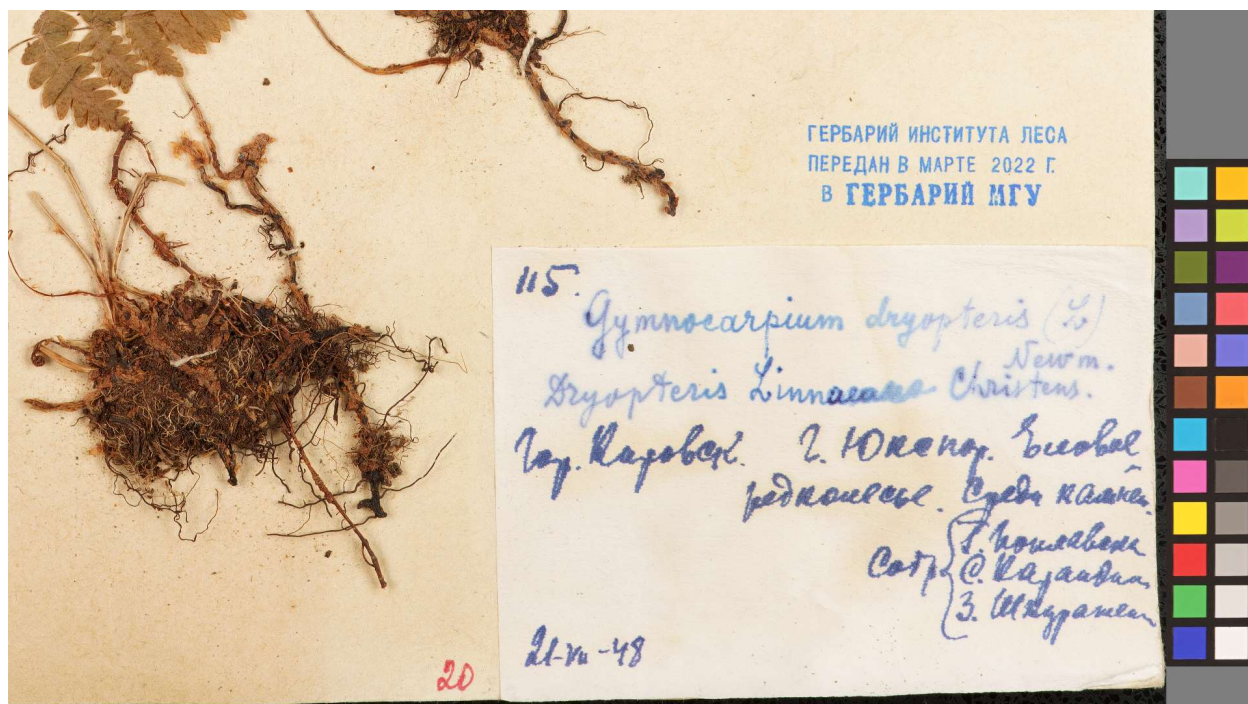 ГЕРБАРИЙ ИНСТИТУТА ЛЕСА
ПЕРЕДАН В МАРТЕ 2022 Г.
В ГЕРБАРИЙ МГУ
115.
Gymnocarpium dryopteris (L)
Newm.
Dryopteris Linnaeana Christens.
Гор. Кировск. Г. Юкспор. Еловое
редколесье. Среди камней.
Собр.
21-VII-48
20